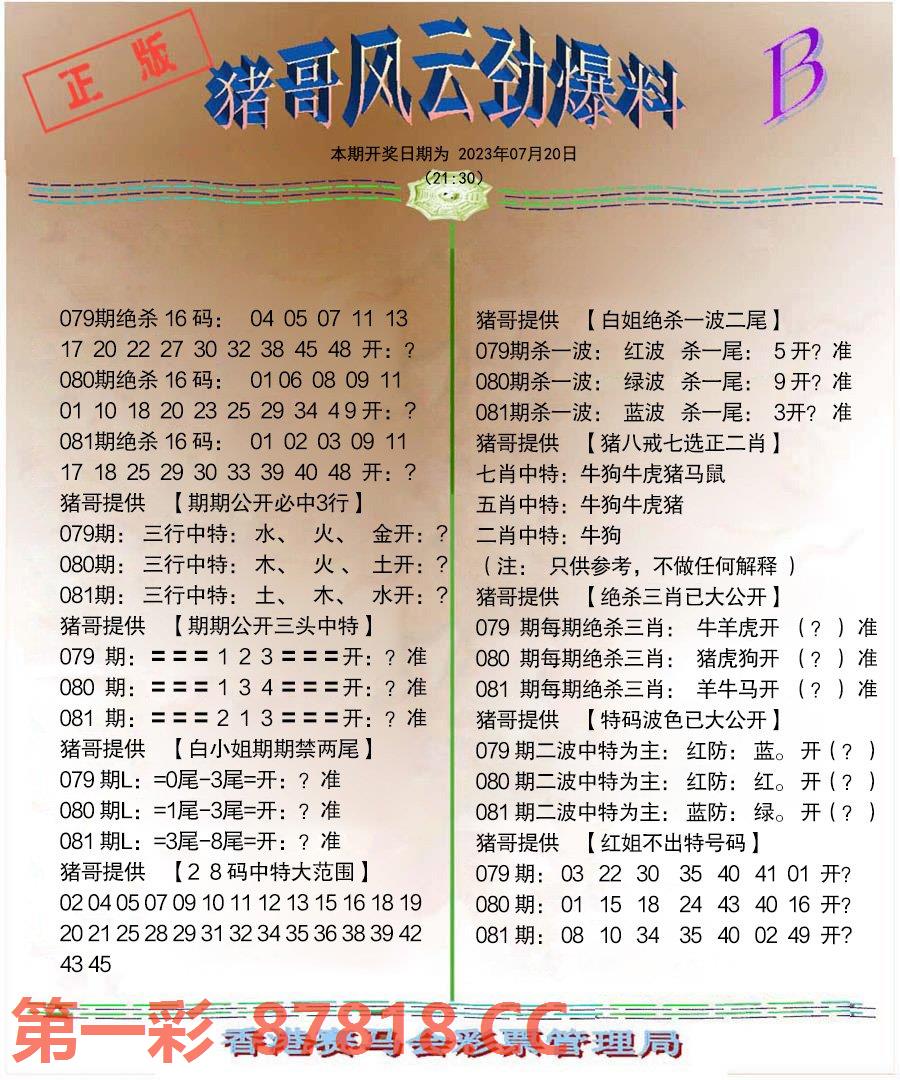 正版
猪哥风云劲爆料
B
本期开奖日期为 2023年07月20日
(21:30)
079期绝杀 16 码： 04 05 07 11 13
17 20 22 27 30 32 38 45 48 开：?
080期绝杀 16 码： 01 06 08 09 11
01 10 18 20 23 25 29 34 4 9 开：?
081期绝杀 16 码： 01 02 03 09 11
17 18 25 29 30 33 39 40 48 开：?
猪哥提供 【期期公开必中3行】
079期： 三行中特： 水、 火、 金开：?
080期： 三行中特： 木、 火 、 土开：?
081期： 三行中特： 土、 木、 水开：?
猪哥提供 【期期公开三头中特】
079 期：＝＝＝ 1 2 3 ＝＝＝开：? 准
080 期：＝＝＝ 1 3 4 ＝＝＝开：? 准
081 期：＝＝＝ 2 1 3 ＝＝＝开：? 准
猪哥提供 【白小姐期期禁两尾】
079 期L：=0尾-3尾=开：? 准
080 期L：=1尾-3尾=开：? 准
081 期L：=3尾-8尾=开：? 准
猪哥提供 【2 8 码中特大范围】
02 04 05 07 09 10 11 12 13 15 16 18 19
20 21 25 28 29 31 32 34 35 36 38 39 42
43 45
猪哥提供 【白姐绝杀一波二尾】
079期杀一波： 红波 杀一尾： 5 开? 准
080期杀一波： 绿波 杀一尾： 9 开? 准
081期杀一波： 蓝波 杀一尾： 3开? 准
猪哥提供 【猪八戒七选正二肖】
七肖中特：牛狗牛虎猪马鼠
五肖中特：牛狗牛虎猪
二肖中特：牛狗
（注： 只供参考，不做任何解释 ）
猪哥提供 【绝杀三肖已大公开】
079 期每期绝杀三肖： 牛羊虎开 （? ）准
080 期每期绝杀三肖： 猪虎狗开 （? ）准
081 期每期绝杀三肖： 羊牛马开 （? ）准
猪哥提供 【特码波色已大公开】
079 期二波中特为主：红防：蓝。开（? ）
080 期二波中特为主：红防：红。开（? ）
081 期二波中特为主：蓝防：绿。开（? ）
猪哥提供 【红姐不出特号码】
079期： 03 22 30 35 40 41 01 开?
080期： 01 15 18 24 43 40 16 开?
081期： 08 10 34 35 40 02 49 开?
第一彩 87818.CC
香港赛马会彩票管理局